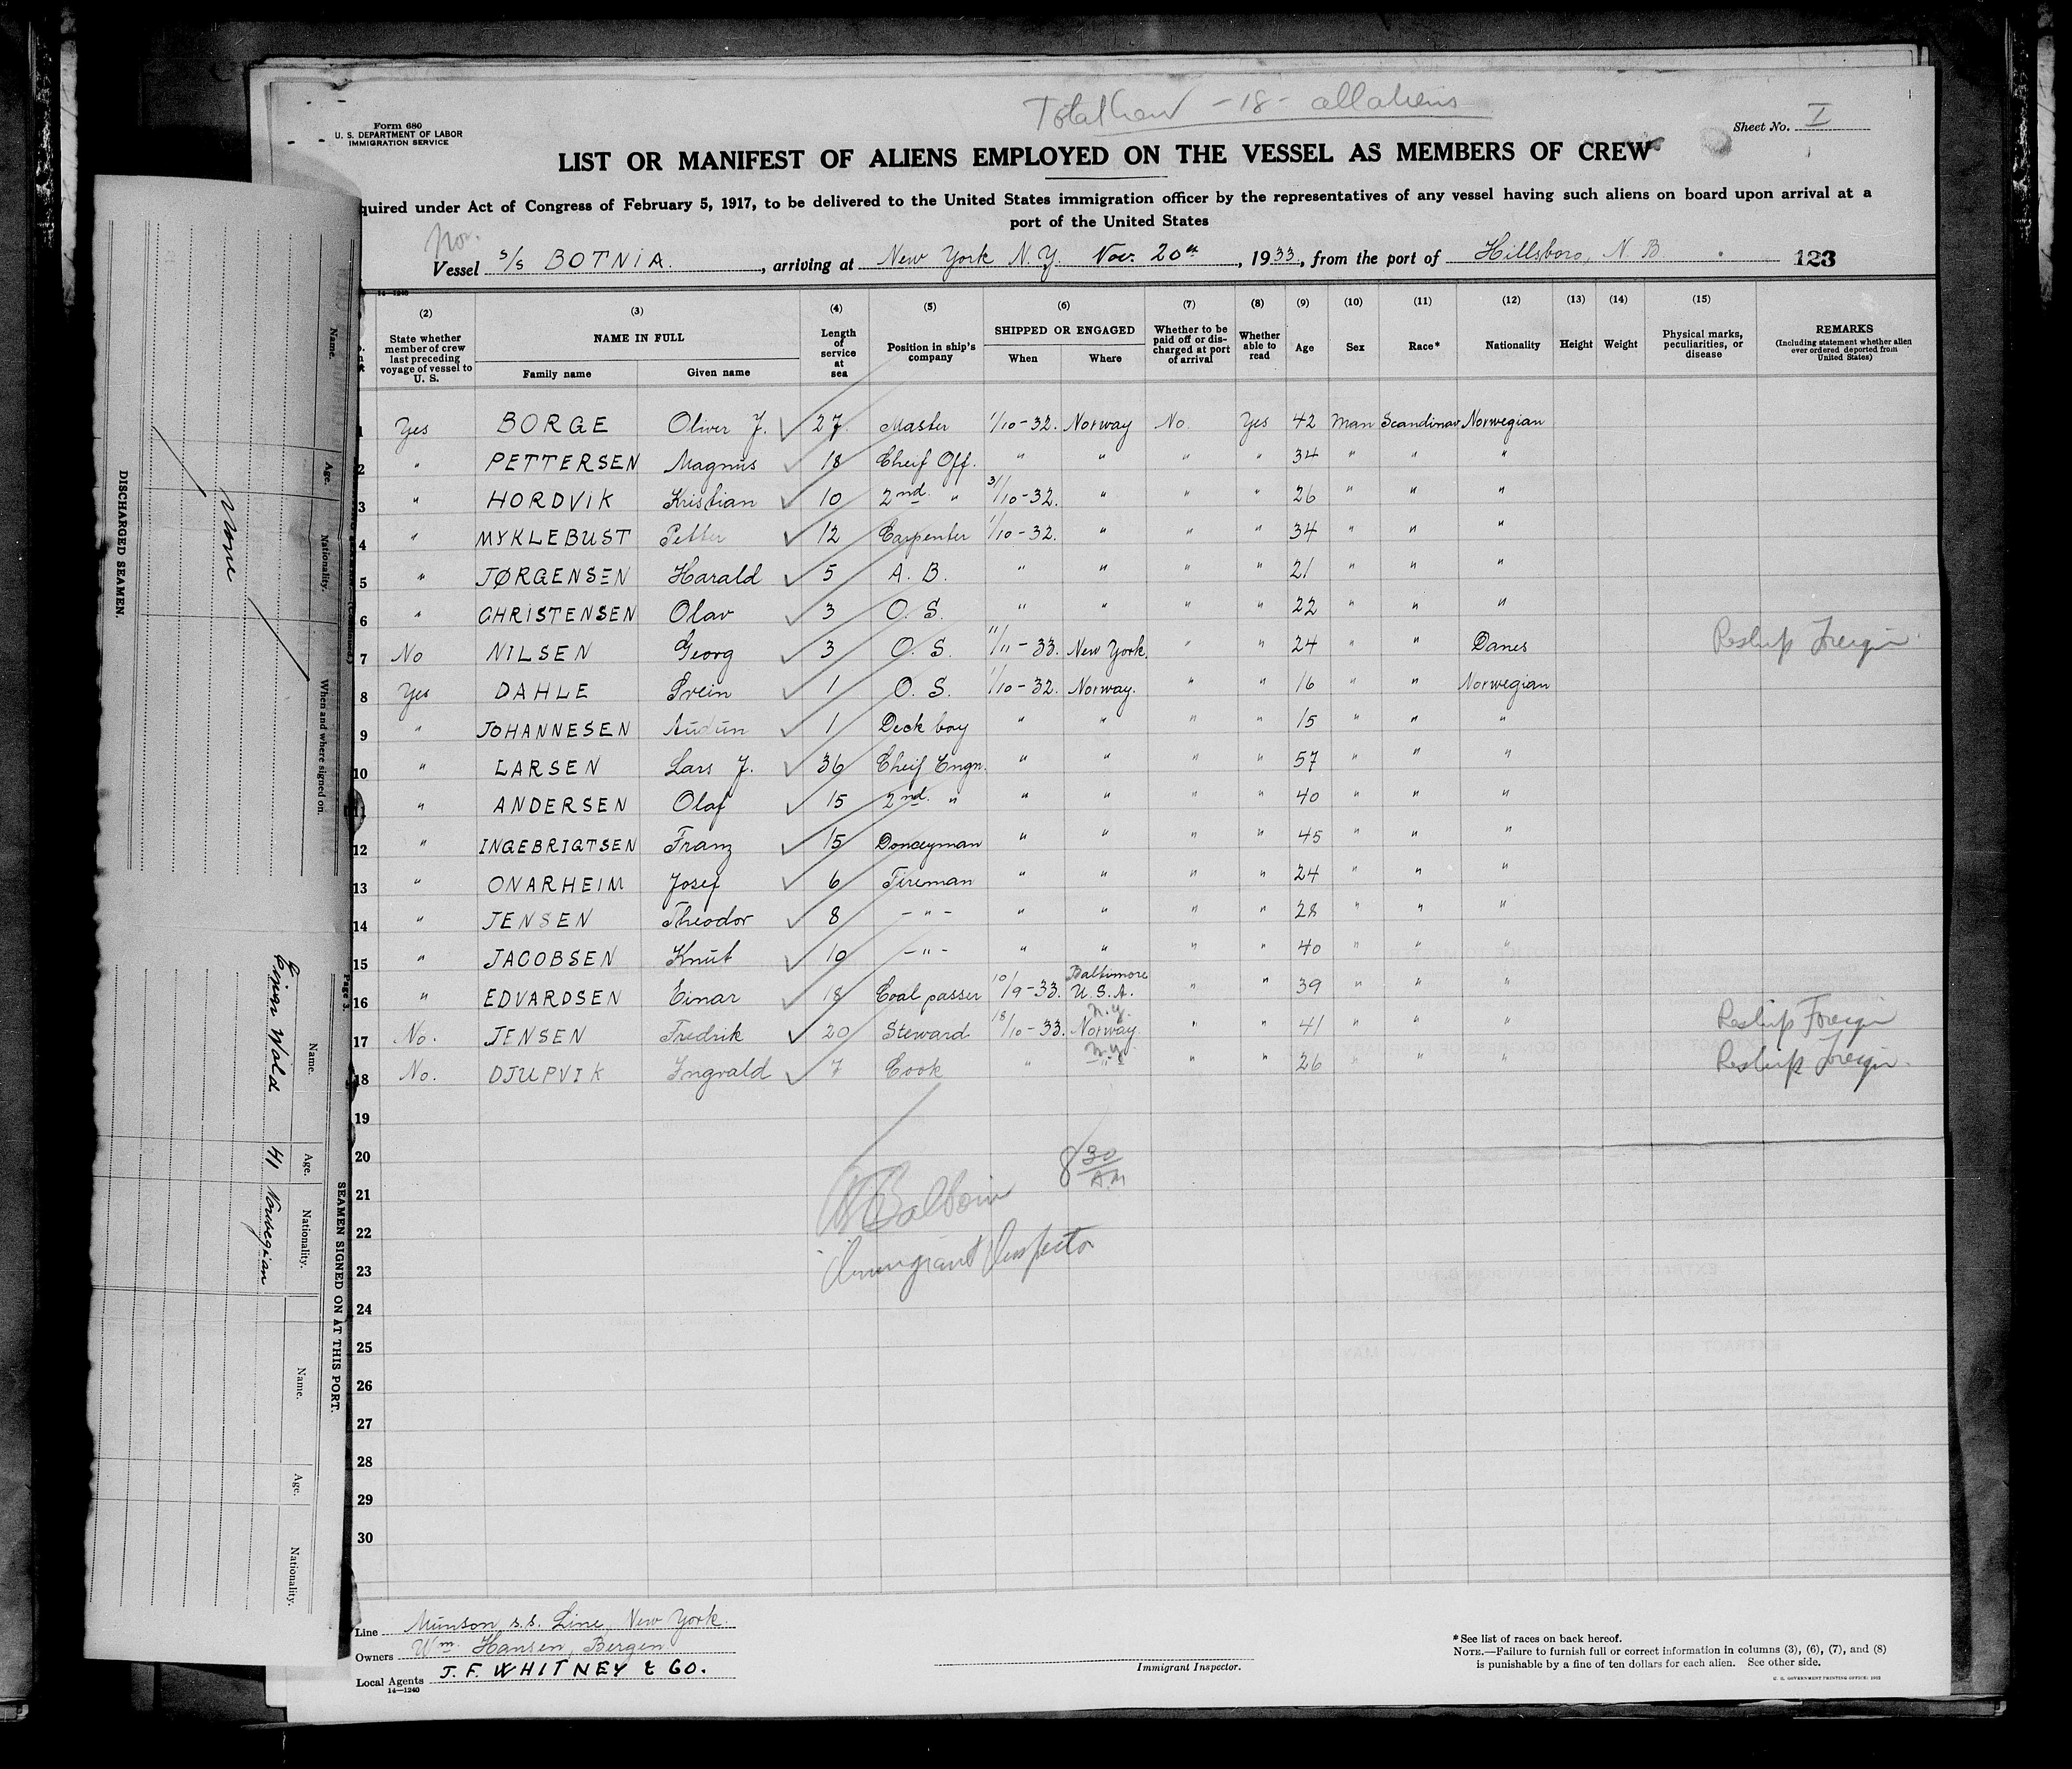 Total Crew -18- all aliens
Form 680
U. S. DEPARTMENT OF LABOR
IMMIGRATION SERVICE
Sheet No. I
LIST OR MANIFEST OF ALIENS EMPLOYED ON THE VESSEL AS MEMBERS OF CREW
quired under Act of Congress of February 5, 1917, to be delivered to the United States immigration officer by the representatives of any vessel having such aliens on board upon arrival at a
port of the United States
Nor.
Vessel S/S BOTNIA., arriving at New York N.Y. Nov. 20th, 1933, from the port of Hillsboro, N. B. 123
14—1240
(2) (3) (4) (5) (6) (7) (8) (9) (10) (11) (12) (13) (14) (15)
State whether member of crew last preceding voyage of vessel to U. S. NAME IN FULL Family name Given name Length of service at sea Position in ship's company SHIPPED OR ENGAGED When Where Whether to be paid off or discharged at port of arrival Whether able to read Age Sex Race* Nationality Height Weight Physical marks, peculiarities, or disease REMARKS (Including statement whether alien ever ordered deported from United States)
1 Yes BORGE Oliver J. 27. Master 1/10-32. Norway No. Yes 42 Man Scandinav Norwegian
2 " PETTERSEN Magnus 18 Cheif Off. " " " " 34 " " "
3 " HORDVIK Kristian 10 2nd. " 3/10-32. " " " 26 " " "
4 " MYKLEBUST Petter 12 Carpenter 1/10-32. " " " 34 " " "
5 " JØRGENSEN Harald 5 A. B. " " " " 21 " " "
6 " CHRISTENSEN Olav 3 O. S. " " " " 22 " " "
7 No NILSEN Georg 3 O. S. 11/11-33. New York. " " 24 " " Danes Reship Foreign
8 Yes DAHLE Svein 1 O. S. 1/10-32. Norway. " " 16 " " Norwegian
9 " JOHANNESEN Audun 1 Deck boy " " " " 15 " " "
10 " LARSEN Lars J. 36 Cheif Engn. " " " " 57 " " "
11 " ANDERSEN Olaf 15 2nd. " " " " " 40 " " "
12 " INGEBRIGTSEN Franz 15 Donceyman " " " " 45 " " "
13 " ONARHEIM Josef 6 Fireman " " " " 24 " " "
14 " JENSEN Theodor 8 - " - " " " " 28 " " "
15 " JACOBSEN Knut 10 - " - " " " " 40 " " "
16 " EDVARDSEN Einar 18 Coal passer 10/9-33. Baltimore U. S. A. " " 39 " " "
17 No. JENSEN Fredrik 20 Steward 18/10-33. Norway. N.Y. " " 41 " " " Reship Foreign
18 No. DJUPVIK Ingvald 7 Cook " " N.Y. " " 26 " " " Reship Foreign.
19
20
21
22
23
24
25
26
27
28
29
30
8 30 AM
Immigrant Inspector
Line Munson S.S. Line, New York.
Owners Wm. Hansen, Bergen
Local Agents J. F. WHITNEY & CO.
14—1240
Immigrant Inspector.
*See list of races on back hereof.
NOTE.—Failure to furnish full or correct information in columns (3), (6), (7), and (8)
is punishable by a fine of ten dollars for each alien. See other side.
U. S. GOVERNMENT PRINTING OFFICE: 1932
DISCHARGED SEAMEN.
Name. Age. Nationality. When and where signed on.
None
Page 3.
SEAMEN SIGNED ON AT THIS PORT.
Name. Age. Nationality. Name. Age. Nationality.
Wold 41 Norwegian